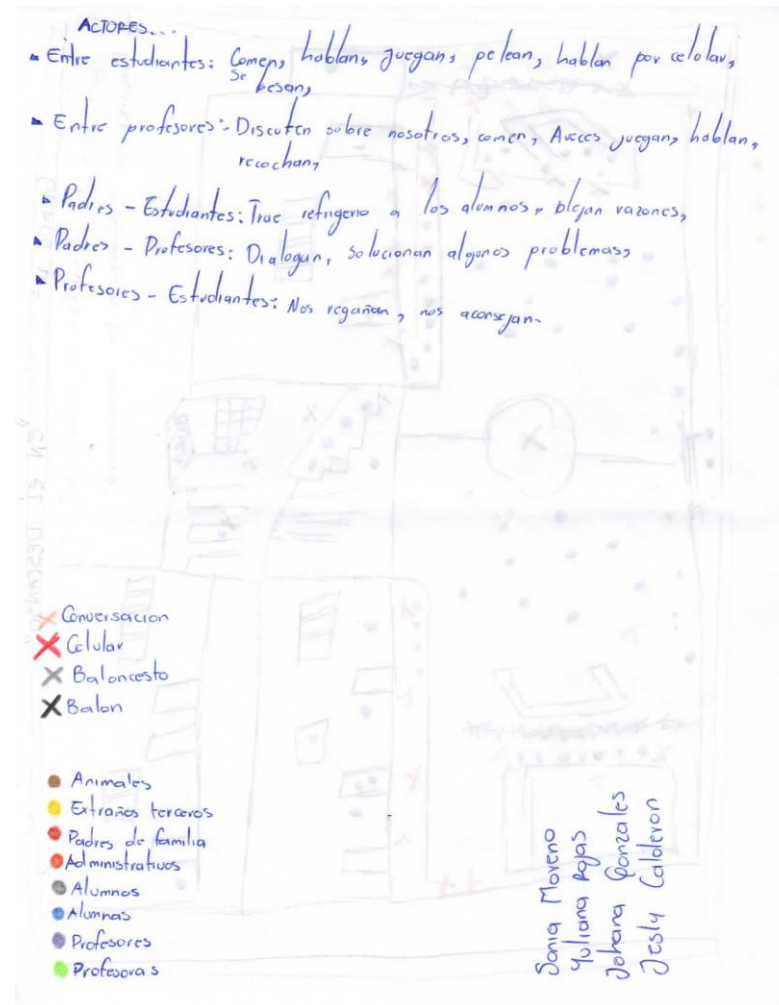 ACTORES...
Entre estudiantes: Comen, hablan, juegan, pelean, hablan por celolar,
se besan,
Entre profesores:- Discuten sobre nosotros, comen, Aveces juegan, hablan,
recochan,
Padres - Estudiantes: Trae refrigerio a los alumnos, razones,
Padres - Profesores: Dialogan, solucionan algunos problemas,
Profesores - Estudiantes: Nos regañan, nos aconsejan.
"EN EL DESCANSO"
Conversacion
Celular
Baloncesto
Balon
Animales
Extraños terceros
Padres de familia
Administrativos
Alumnos
Alumnas
Profesores
Profesoras
Sonia Moreno
Yuliana Rojas
Johana Gonzales
Jesly Calderon